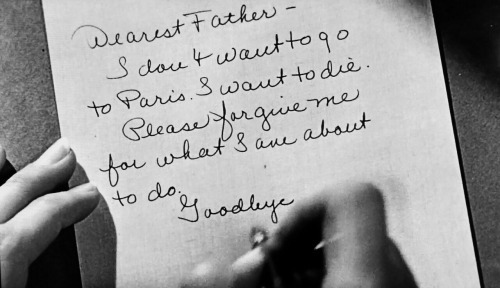 Dearest Father -
I don't want to go
to Paris. I want to die.
Please forgive me
for what I am about
to do.
Goodbye